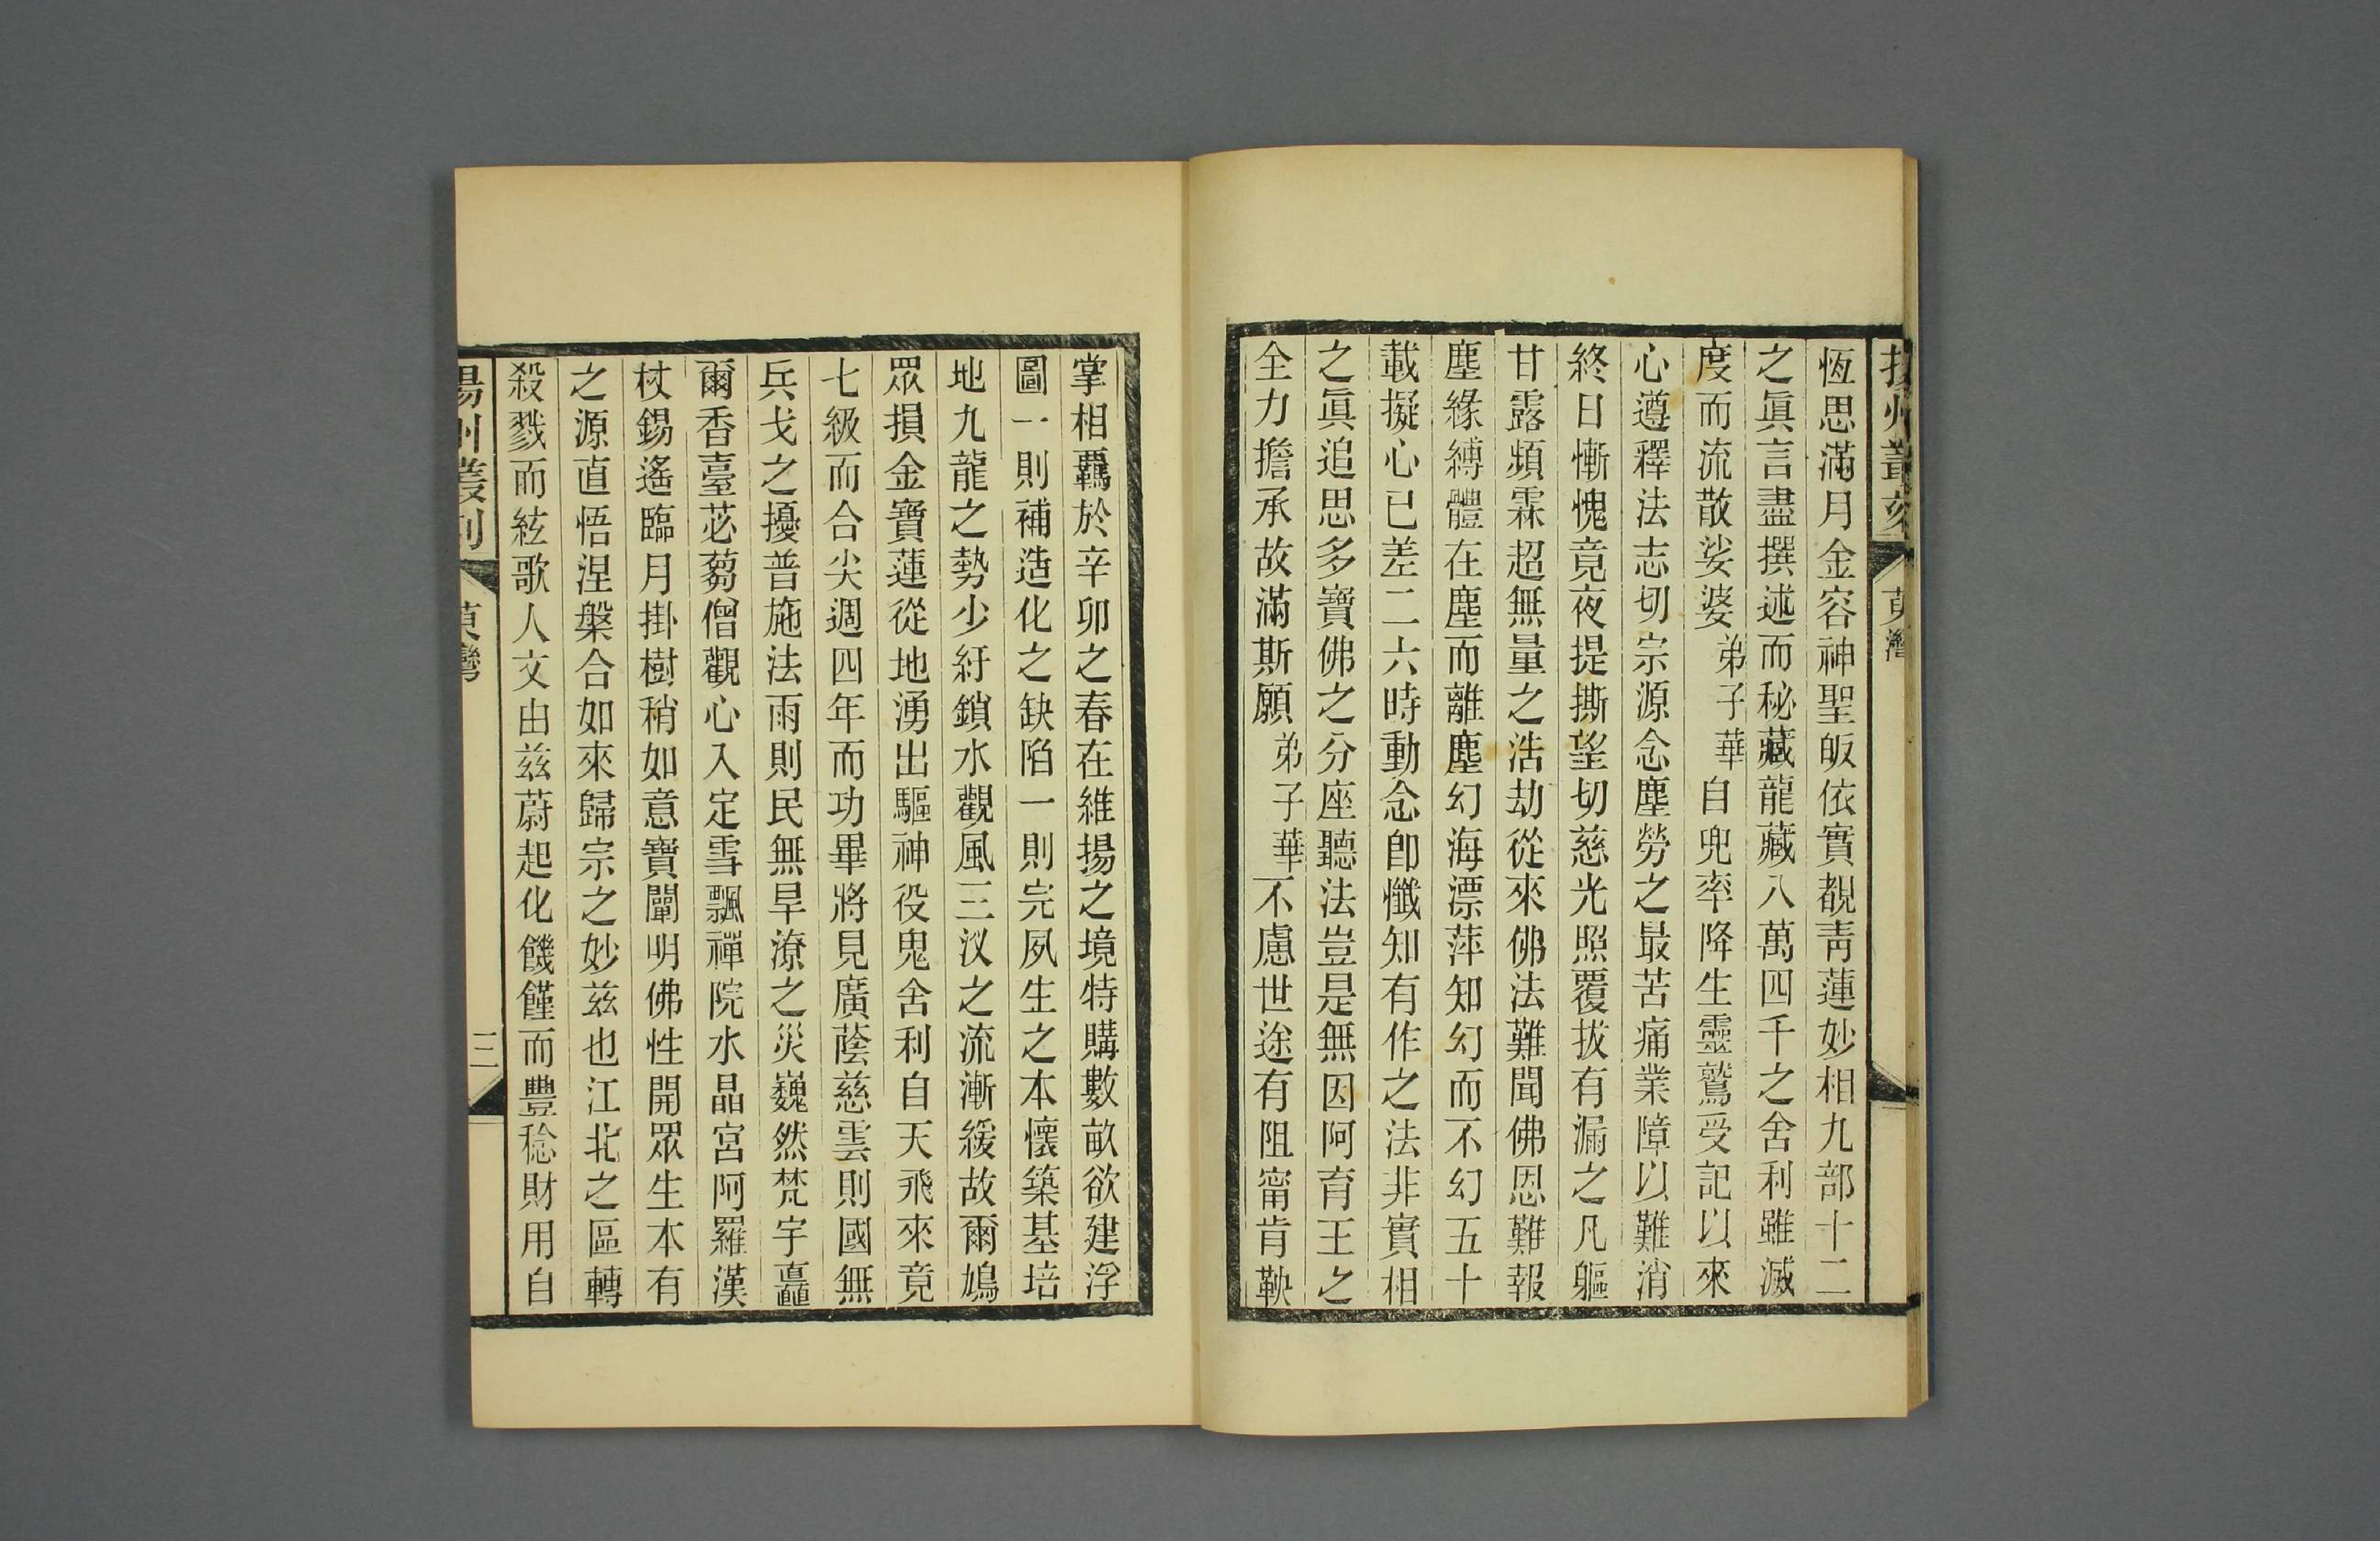 揚州叢刻
茰灣
恆思滿月金容神聖皈依實覩靑蓮妙相九部十二
之眞言盡撰述而秘藏龍藏八萬四千之舍利雖滅
度而流散娑婆弟子華自兜率降生靈鷲受記以來
心遵釋法志切宗源念塵勞之最苦痛業障以難消
終日慚愧竟夜提撕望切慈光照覆拔有漏之凡軀
甘露頻霖超無量之浩劫從來佛法難聞佛恩難報
塵緣縛體在塵而離塵幻海漂萍知幻而不幻五十
載擬心已差二六時動念卽懺知有作之法非實相
之眞追思多寶佛之分座聽法豈是無因阿育王之
全力擔承故滿斯願弟子華不慮世途有阻甯肯鞅
掌相羈於辛卯之春在維揚之境特購數畝欲建浮
圖一則補造化之缺陷一則完夙生之本懷築基培
地九龍之勢少紆鎖水觀風三汊之流漸緩故爾鳩
眾損金寶蓮從地湧出驅神役鬼舍利自天飛來竟
七級而合尖週四年而功畢將見廣蔭慈雲則國無
兵戈之擾普施法雨則民無旱潦之災巍然梵宇矗
爾香臺苾蒭僧觀心入定雪飄禪院水晶宮阿羅漢
杖錫遙臨月掛樹稍如意寶闡明佛性開眾生本有
之源直悟涅槃合如來歸宗之妙茲也江北之區轉
殺戮而絃歌人文由茲蔚起化饑饉而豐稔財用自
揚州叢刻
茰灣
三